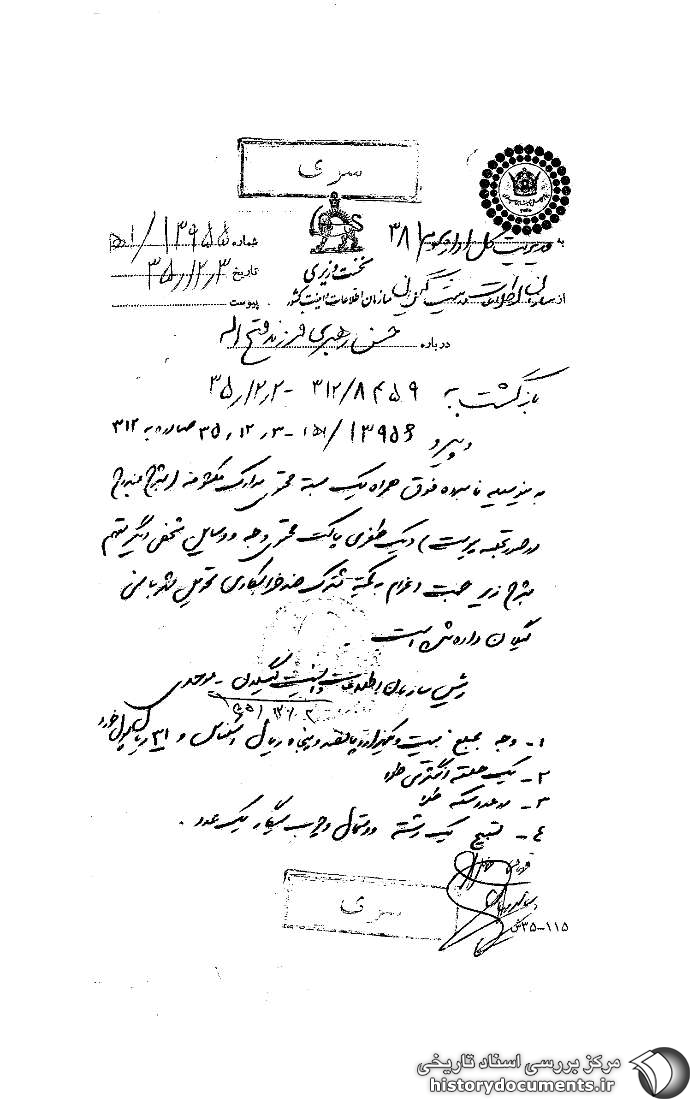 سری
به مدیریت کل اداره سوم ۳۸۱
شماره ۱۳۹۵۵/ه‍۱
نخست وزیری
تاریخ ۳۵/۱۲/۳
از سازمان اطلاعات و امنیت گیلان سازمان اطلاعات و امنیت کشور
پیوست
درباره حسن رهبری فرزند فتح اله
بازگشت به ۳۱۲/۸۴۵۹ - ۳۵/۱۲/۲
و پیرو ۱۳۹۵۶/ه‍۱ - ۳۵/۱۲/۳ صادره به ۳۱۲
بدینوسیله نامبرده فوق همراه یک بسته محتوی مدارک مکشوفه (بشرح مندرج
در صورتجلسه پیوست) و یک طغری پاکت محتوی وجه و وسایل شخصی دیگر متهم
بشرح زیر جهت اعزام به کمیته مشترک ضد خرابکاری تحویل شهربانی
گیلان داده شده است
رئیس سازمان اطلاعات و امنیت گیلان -
۱- وجه بمبلغ بیست و یکهزار و پانصد و پنجاه ریال اسکناس و ۳۱ ریال پول خورد
۲- یک حلقه انگشتری طلا
۳- دو عدد سکه طلا
۴- تسبیح یک رشته دستمال و چوب سیگار یک عدد .
سری
۳۵-۱۱۵
مرکز بررسی اسناد تاریخی
historydocuments.ir